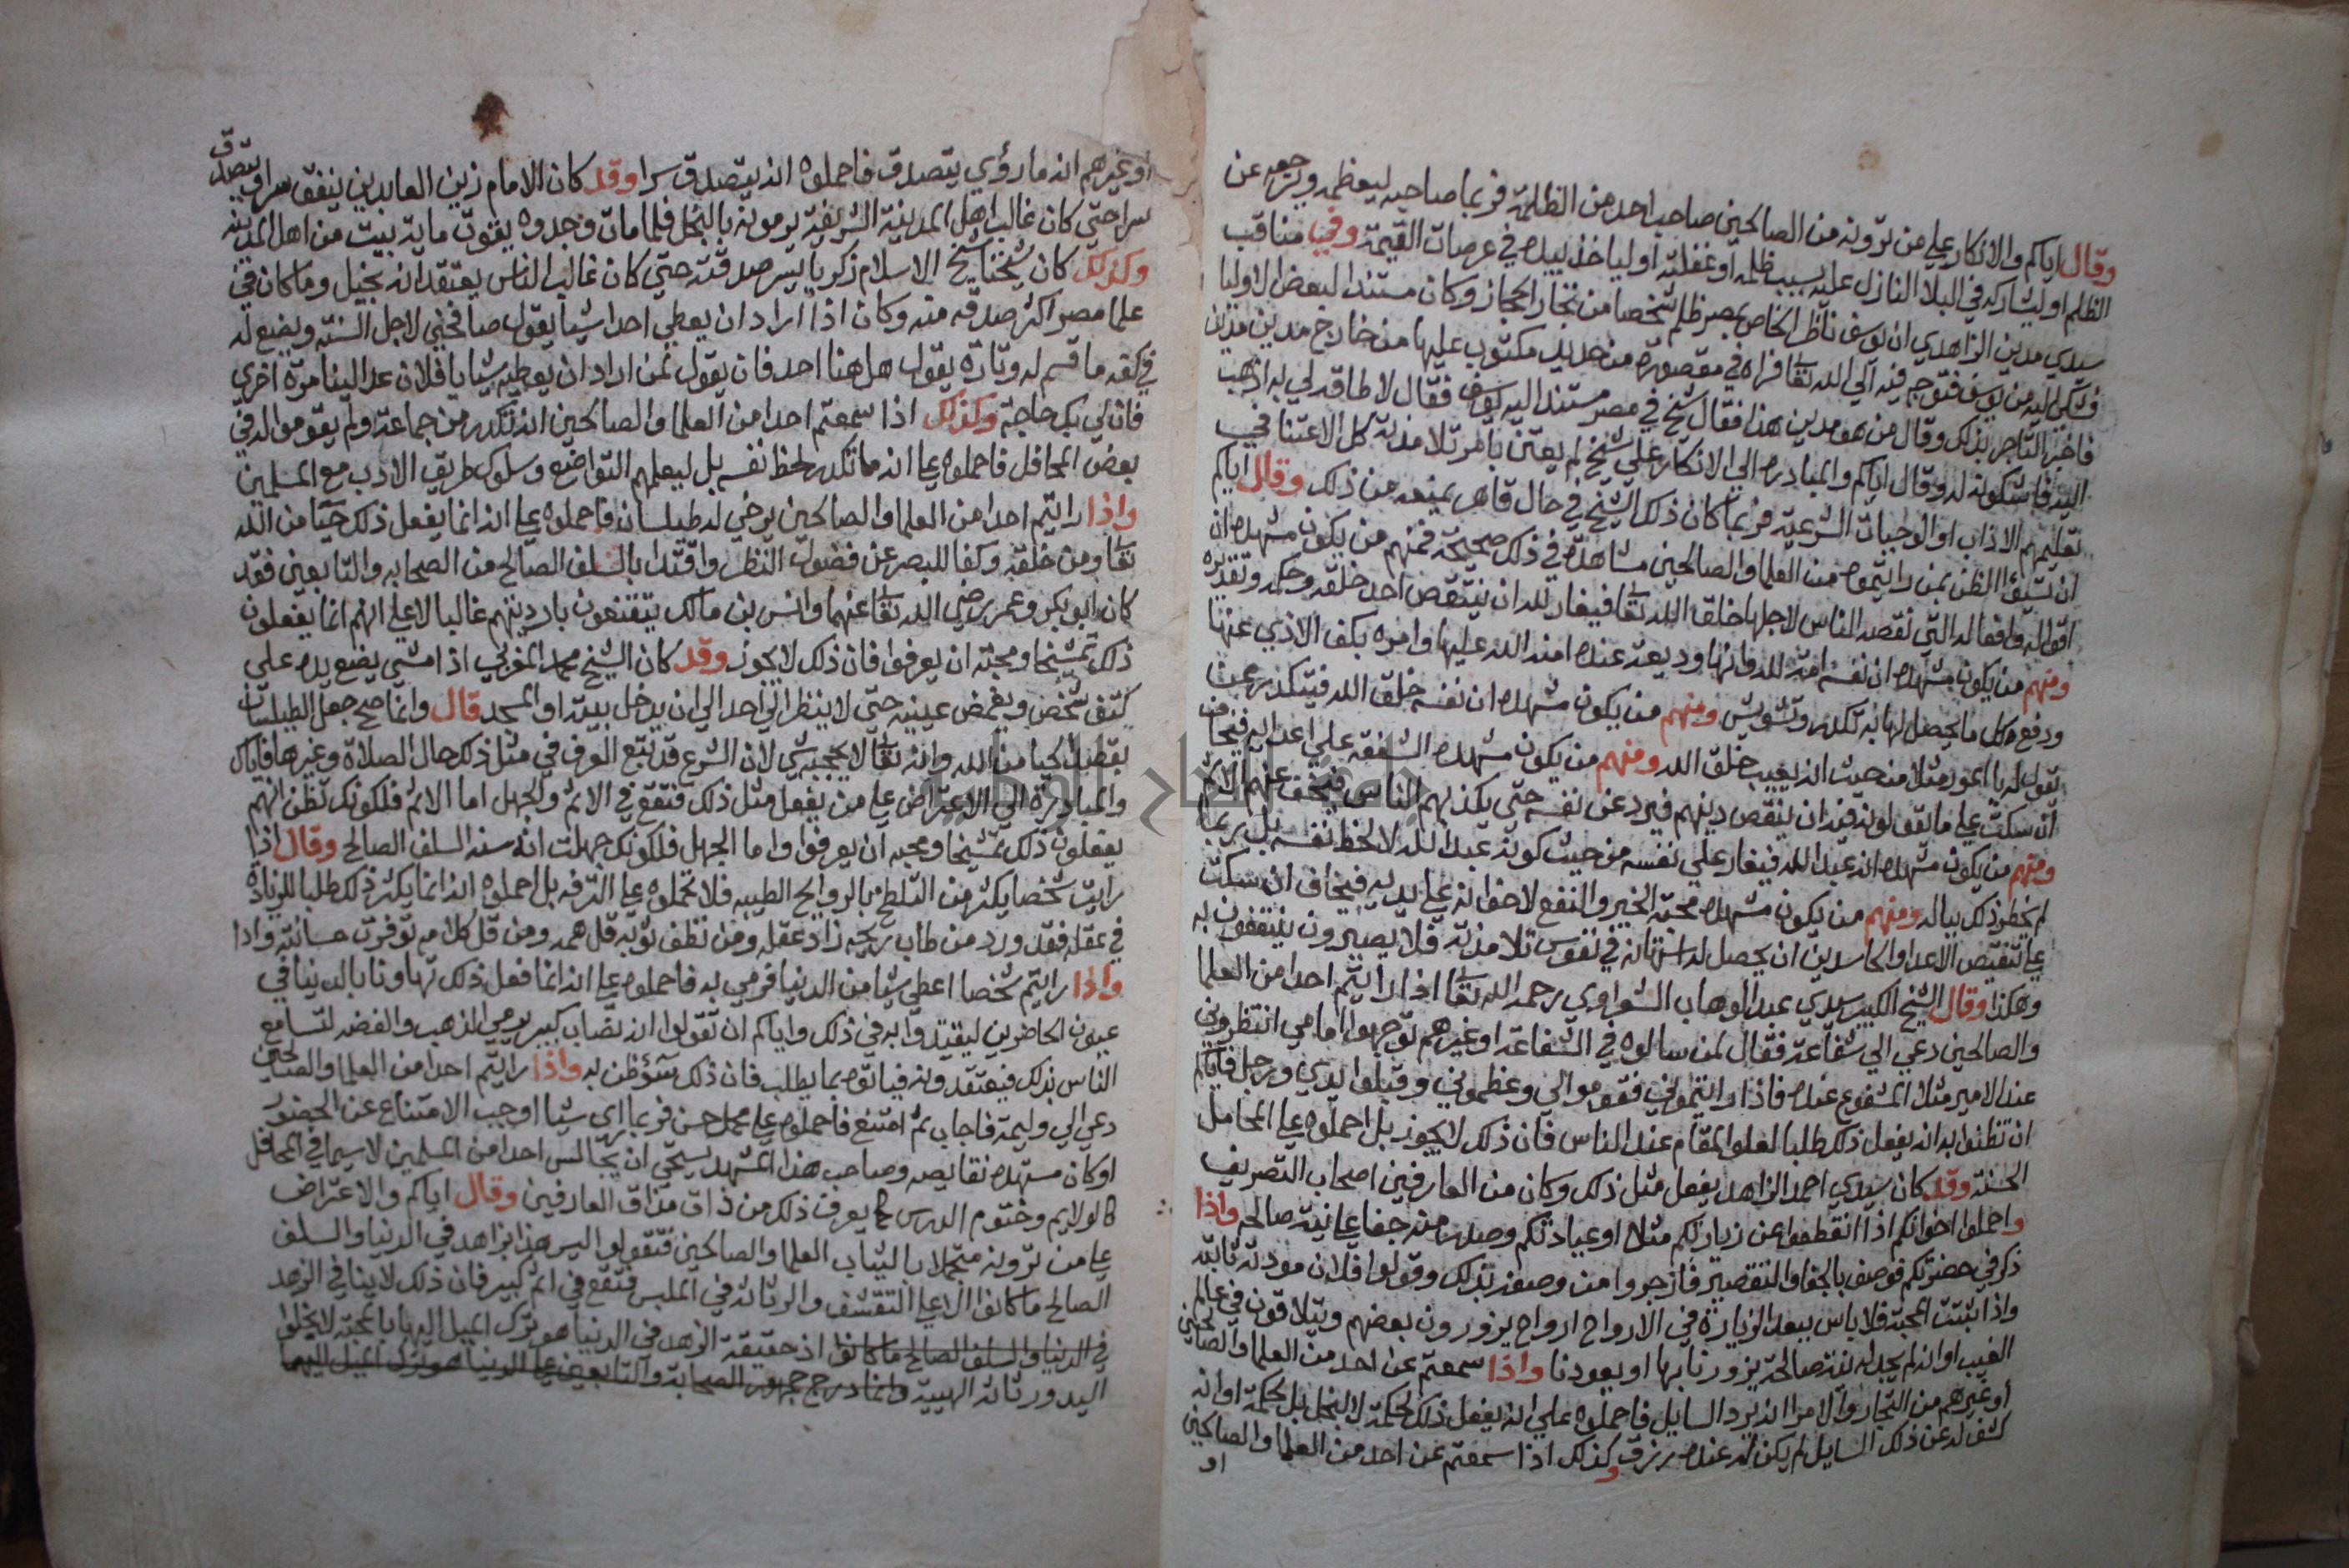 وقال اياكم والانكار علي من ترونه من الصالحين صاحب احد من الظلمة فربما صاحبه ليعظه ويرجعه عن
الظلم او ليشاركه في البلا النازل عليه بسبب ظلمه او غفلته او لياخذ بيده في عرصات القيمة وفي مناقب
سيدي مدين الزاهدي ان يوسف ناظر الخاص بمصر ظلم شخصا من تجار الحجاز وكان مستندا لبعض الاوليا
فشكي اليه من يوسف فتوجه فيه الي الله تعا فراه في مقصورة من حديد مكتوب عليها من خارج مدين مدين
فاخبر التاجر بذلك وقال من هو مدين هذا فقال شيخ في مصر مستند اليه يوسف فقال لا طاقة لي به اذهب
اليه فاشكو له وقال اياكم والمبادره الي الانكار علي شيخ لم يعتن بامر تلامذته كل الاعتنا في
تعليمهم الاداب او الوجبات الشرعية فربما كان ذلك الشيخ في حال قاهر يمنعه من ذلك وقال اياكم
ان تسيؤا الظن بمن رايتموه من العلما والصالحين مشاهدته في ذلك صحيحة فمنهم من يكون مشهده ان
اقواله وافعاله التي نقصه الناس لاجلها خلق الله تعا فيغار لله ان ينتقص احد خلقه وحكمه وتقديره
ومنهم من يكون مشهده ان نفسه امة لله وانها وديعة عنده امنه الله عليها وامره بكف الاذي عنها
ودفع كل ما يحصل لها به تكدر وتشويش ومنهم من يكون مشهده ان نفسه خلق الله فيتكدر ممن
يقول له يا اعور مثلا من حيث انه يعيب خلق الله ومنهم من يكون مشهده الشفقة علي اعدائه فيخاف
ان سكت علي ما يقولونه فيه ان ينقص دينهم فيرد عن نفسه حتي يكذبهم الناس فيخف عنهم الاثم
ومنهم من يكون مشهده انه عبد الله فيغار علي نفسه من حيث كونه عبدا لله لا لحظ نفسه بل ربما
لم يخطر ذلك بباله ومنهم من يكون مشهده محبة الخير والنفع لاخوانه علي يديه فيخاف ان سكت
علي تنقيص الاعدا والحاسدين ان يحصل له استهانة في نفوس تلامذته فلا يصيرون ينتفعون به
وهكذا وقال الشيخ الكبير سيدي عبد الوهاب الشعراوي رحمه الله تعا اذا رايتم احدا من العلما
والصالحين دعي الي شفاعة فقال لمن سالوه في الشفاعة او غيرهم توجهوا امامي انتظروني
عند الامير مثلا المشفوع عنده فاذا رايتموني فقوموا لي وعظموني وقبلوا يدي ورجلي فاياكم
ان تظنوا به انه يفعل ذلك طلبا لعلو المقام عند الناس فان ذلك لا يجوز بل احملوه علي المحامل
الحسنة وقد كان سيدي احمد الزاهد يفعل مثل ذلك وكان من العارفين اصحاب التصريف
واحملوا اخوانكم اذا انقطعوا عن زيارتكم مثلا او عيادتكم وصلهر منه جفا علي نية صالحه واذا
ذكر في حضرتكم فوصف بالجفا والتقصير فازجروا من وصفه بذلك وقولوا فلان مودته ثابتة
واذا ثبتت المحبة فلا باس ببعد الزيارة في الارواح ارواح يزورون بعضهم ويتلاقون في عالم
الغيب او انه لم يجد له نية صالحة يزورنا بها او يعودنا واذا سمعتم عن احد من العلما والصالحين
او غيرهم من التجار والامرا انه يرد السايل فاحملوه علي انه يفعل ذلك لحكمة لا لبخل بل لحكمة او انه
كشف له عن ذلك السايل لم يكن له عنده رزق وكذلك اذا سمعتم عن احد من العلما والصالحين
او
او غيرهم انه ما رؤي يتصدق فاحملوه انه يتصدق سرا وقد كان الامام زين العابدين ينفق سرا ويتصدق
سرا حتي كان غالب اهل المدينة الشريفة يرمونه بالبخل فلما مات وجدوه يقوت ماية بيت من اهل المدينه
وكذلك كان شيخنا شيخ الاسلام زكريا يسر صدقته حتي كان غالب الناس يعتقد انه بخيل وما كان في
علما مصر اكثر صدقه منه وكان اذا اراد ان يعطي احدا شيا يقول صافحني لاجل السنة ويضع له
في كفه ما قسم له وتارة يقول هل هنا احد فان يقول لمن اراد ان يعطيه شيا يا فلان عد الينا مرة اخري
فان لي بك حاجة وكذلك اذا سمعتم احدا من العلما والصالحين انه تكدر من جماعة ولم يقوموا له في
بعض المحافل فاحملوه علي انه ما تكدر لحظ نفسه بل ليعلمهم التواضع وسلوك طريق الادب مع المسلمين
واذا رايتم احدا من العلما والصالحين يرخي له طيلسانه فاحملوه علي انه انما يفعل ذلك حيا من الله
تعا ومن خلقه وكفا للبصر عن فضول النظر واقتدا بالسلف الصالح من الصحابه والتابعين فقد
كان ابو بكر وعمر رضي الله تعا عنهما وانس بن مالك يتقنعون بارديتهم غالبا لا علي انهم انما يفعلون
ذلك تمشيخا ومحبة ان يعرفوا فان ذلك لا يجوز وقد كان الشيخ محمد المغربي اذا مشي يضع يده علي
كتف شخص ويغمض عينيه حتي لا ينظر الي احد الي ان يدخل بيته او المسجد قال وانما صح جعل الطيلسان
بقصد الحيا من الله وانه تعا لا يحجبه شي لان الشرع قد يتبع العرف في مثل ذلك حال الصلاة وغيرها فاياك
والمبادرة الي الاعتراض علي من يفعل مثل ذلك فتقع في الاثم والجهل اما الاثم فلكونك تظن انهم
يفعلون ذلك تمشيخا ومحبه ان يعرفوا واما الجهل فلكونك جهلت انه سنه السلف الصالح وقال اذا
رايت شخصا يكثر من التلطخ بالروايح الطيبه فلا تحملوه علي الترفه بل احملوه انه انما يكثر ذلك طلبا للزيادة
في عقله فقد ورد من طاب ريحه زاد عقله ومن نظف ثوبه قل همه ومن قل كلامه توفرت حسناته واذا
واذا رايتم شخصا اعطي شيا من الدنيا فرمي به فاحملوه علي انه انما فعل ذلك تهاونا بالدنيا في
عيون الحاضرين ليقتدوا به في ذلك واياكم ان تقولوا انه نصاب كبير يرمي الذهب والفضه لتسامع
الناس بذلك فيعتقدونه فياتوه بما يطلب فان ذلك سؤظن به واذا رايتم احدا من العلما والصالحين
دعي الي وليمة فاجاب ثم امتنع فاحملوه علي محمل حسن فربما راي شيا اوجب الامتناع عن الحضور
او كان مشهده نقايصه وصاحب هذا المشهد يستحي ان يجالس احدا من المسلمين لا سيما في المحافل
كالولايم وختوم الدرس كما يعرف ذلك من ذاق مذاق العارفين وقال اياكم والاعتراض
علي من ترونه متجملا بالثياب العلما والصالحين فتقولوا ليس هذا بزاهد في الدنيا والسلف
الصالح ما كانوا الا علي التقشف والرثاثة في الملبس فتقع في اثم كبير فان ذلك لا ينافي الزهد
في الدنيا والسلف الصالح ما كانوا اذ حقيقة الزهد في الدنيا هو ترك الميل اليها بالمحبة لا يخلوا
اليد ورثاثة الهيية وانما درج جمهور الصحابة والتابعين علي الدنيا هو ترك الميل اليها